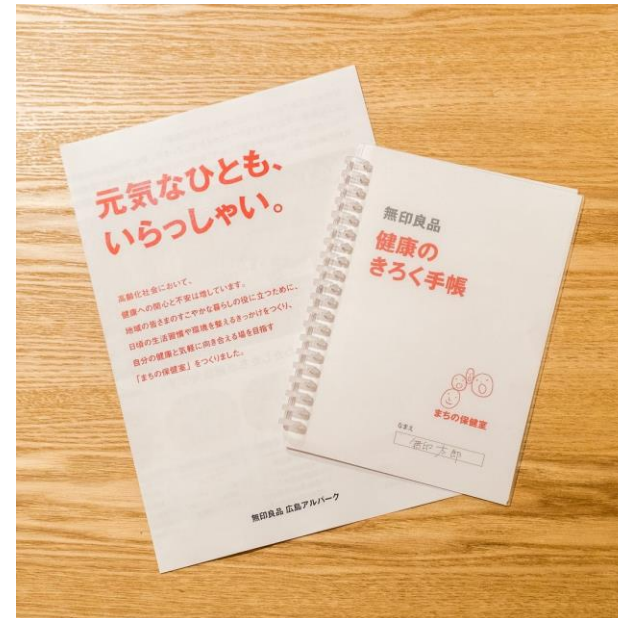 元気なひとも、
いらっしゃい。
高齢化社会において、
健康への関心と不安は増しています。
地域の皆さまのすこやかな暮らしの役に立つために、
日頃の生活習慣や環境を整えるきっかけをつくり、
自分の健康と気軽に向き合える場を目指す
「まちの保健室」をつくりました。
無印良品 広島アルパーク
無印良品
健康の
きろく手帳
まちの保健室
なまえ
無印太郎